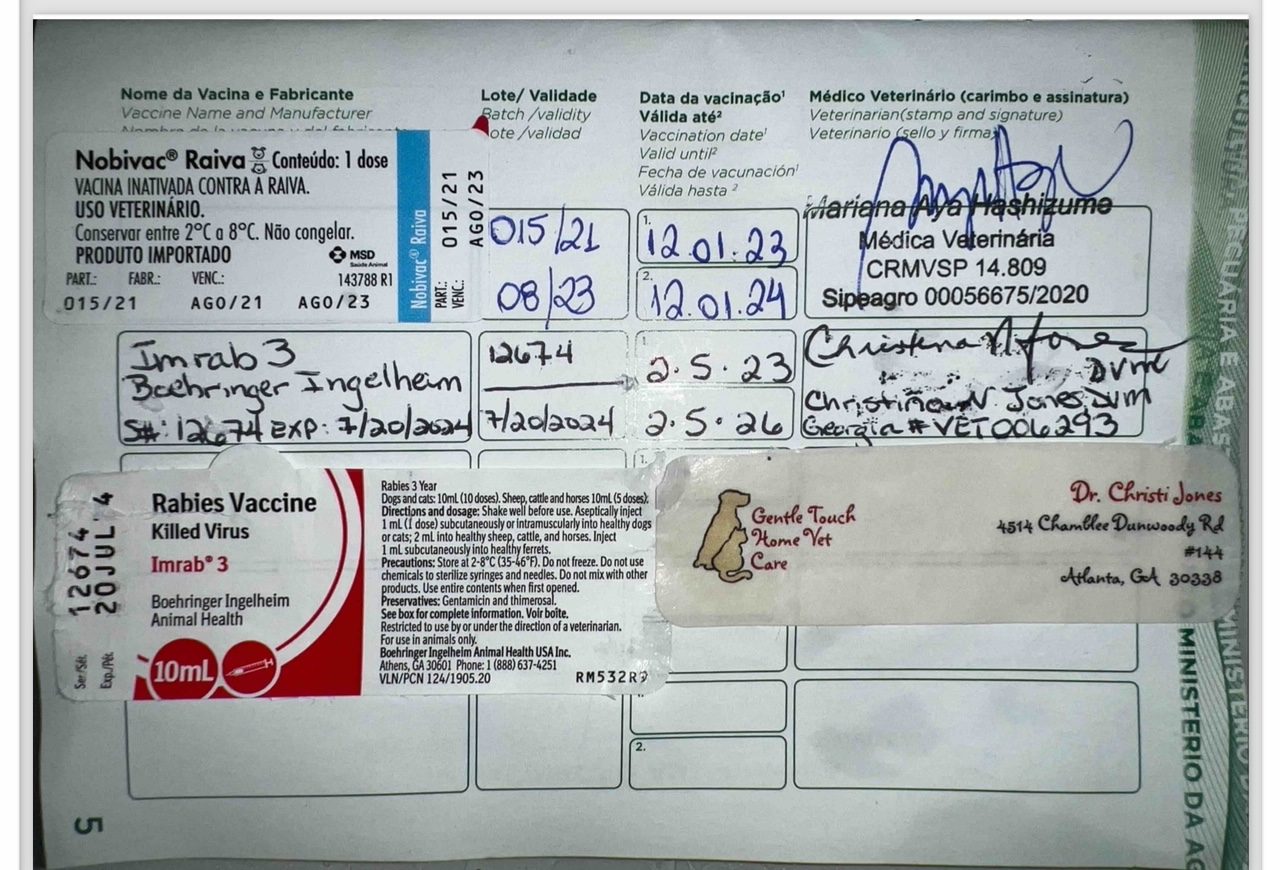 Nome da Vacina e Fabricante
Vaccine Name and Manufacturer
Lote/ Validade
Batch /validity
Lote /validad
Data da vacinação¹
Válida até²
Vaccination date¹
Valid until²
Fecha de vacunación¹
Válida hasta ²
Médico Veterinário (carimbo e assinatura)
Veterinarian(stamp and signature)
Veterinario (sello y firma)
Nobivac® Raiva Conteúdo: 1 dose
VACINA INATIVADA CONTRA A RAIVA.
USO VETERINÁRIO.
Conservar entre 2°C a 8°C. Não congelar.
PRODUTO IMPORTADO
MSD
Saúde Animal
PART.: FABR.: VENC.: 143788 R1
015/21 AGO/21 AGO/23
Nobivac® Raiva
PART.: 015/21
VENC.: AGO/23
015/21
08/23
1.
12.01.23
2.
12.01.24
Mariana Aya Hashizume
Médica Veterinária
CRMVSP 14.809
Sipeagro 00056675/2020
Imrab 3
Boehringer Ingelheim
S#: 12674 EXP: 7/20/2024
12674
7/20/2024
1.
2.5.23
2.5.26
Christina N Jones
DVM
Christina N Jones DVM
Georgia # VET006293
Ser./Sér. 12674
Exp./Pér. 20JUL 4
Rabies Vaccine
Killed Virus
Imrab® 3
Boehringer Ingelheim
Animal Health
10mL
Rabies 3 Year
Dogs and cats: 10mL (10 doses). Sheep, cattle and horses 10mL (5 doses).
Directions and dosage: Shake well before use. Aseptically inject
1 mL (1 dose) subcutaneously or intramuscularly into healthy dogs
or cats; 2 mL into healthy sheep, cattle, and horses. Inject
1 mL subcutaneously into healthy ferrets.
Precautions: Store at 2-8°C (35-46°F). Do not freeze. Do not use
chemicals to sterilize syringes and needles. Do not mix with other
products. Use entire contents when first opened.
Preservatives: Gentamicin and thimerosal.
See box for complete information. Voir boîte.
Restricted to use by or under the direction of a veterinarian.
For use in animals only.
Boehringer Ingelheim Animal Health USA Inc.
Athens, GA 30601 Phone: 1 (888) 637-4251
VLN/PCN 124/1905.20 RM532R
1.
Gentle Touch
Home Vet
Care
Dr. Christi Jones
4514 Chamblee Dunwoody Rd
#144
Atlanta, GA 30338
2.
5
MINISTERIO DA AG